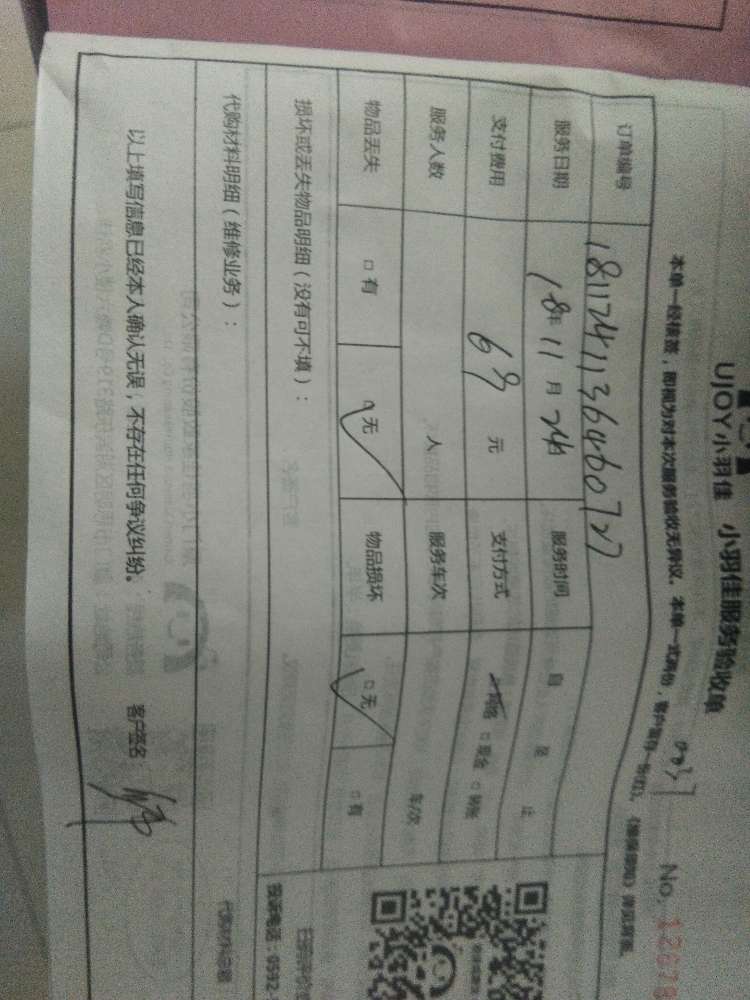 UJOY小羽佳 小羽佳服务验收单
No. 12679
本单一经接签，即视为对本次服务验收无异议。本单一式两份，客户留存一份(红)。
订单编号 18112411364660727
服务日期 18年 11月 24日 服务时间 自 至 止
支付费用 69 元 支付方式 网络 □ 现金 □ 转账
服务人数 人 服务车次 车/次
物品丢失 □ 有 □ 无 物品损坏 □ 无 □ 有
损坏或丢失物品明细（没有可不填）：
代购材料明细（维修业务）：
以上填写信息已经本人确认无误；不存在任何争议纠纷。 客户签名：
投诉电话：0592-